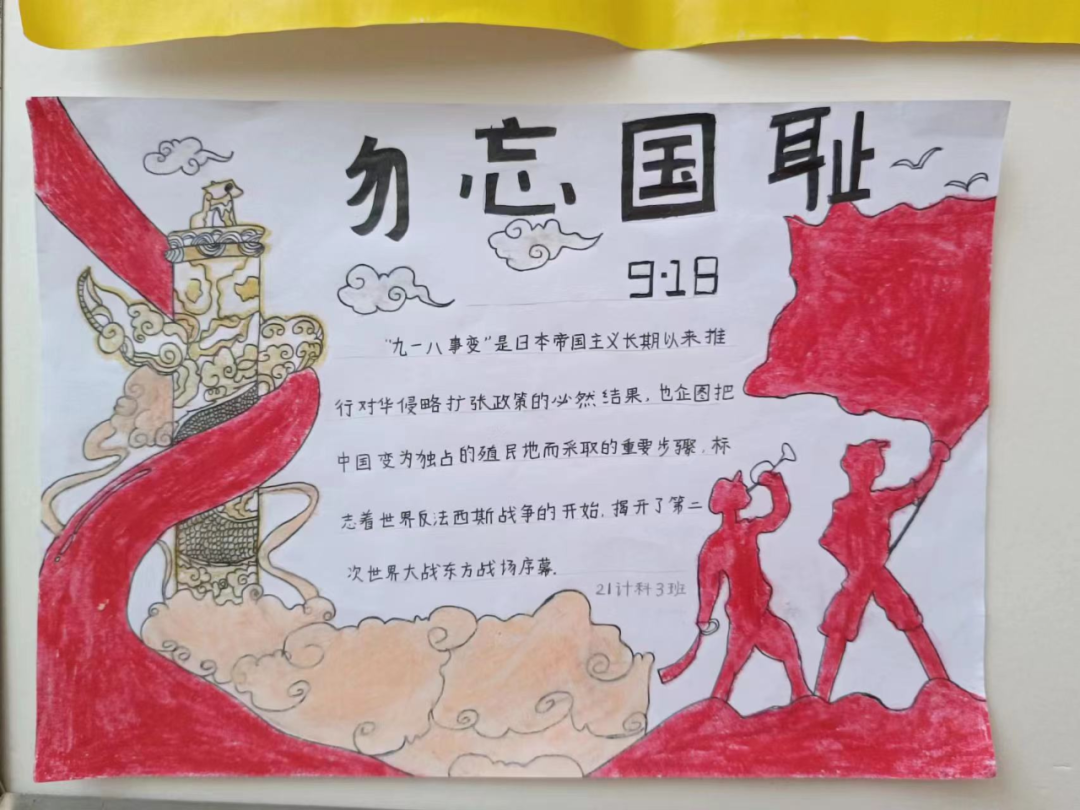 勿忘国耻
9·18
"九一八事变"是日本帝国主义长期以来推
行对华侵略扩张政策的必然结果，也企图把
中国变为独占的殖民地而采取的重要步骤，标
志着世界反法西斯战争的开始，揭开了第二
次世界大战东方战场序幕.
21计科3班